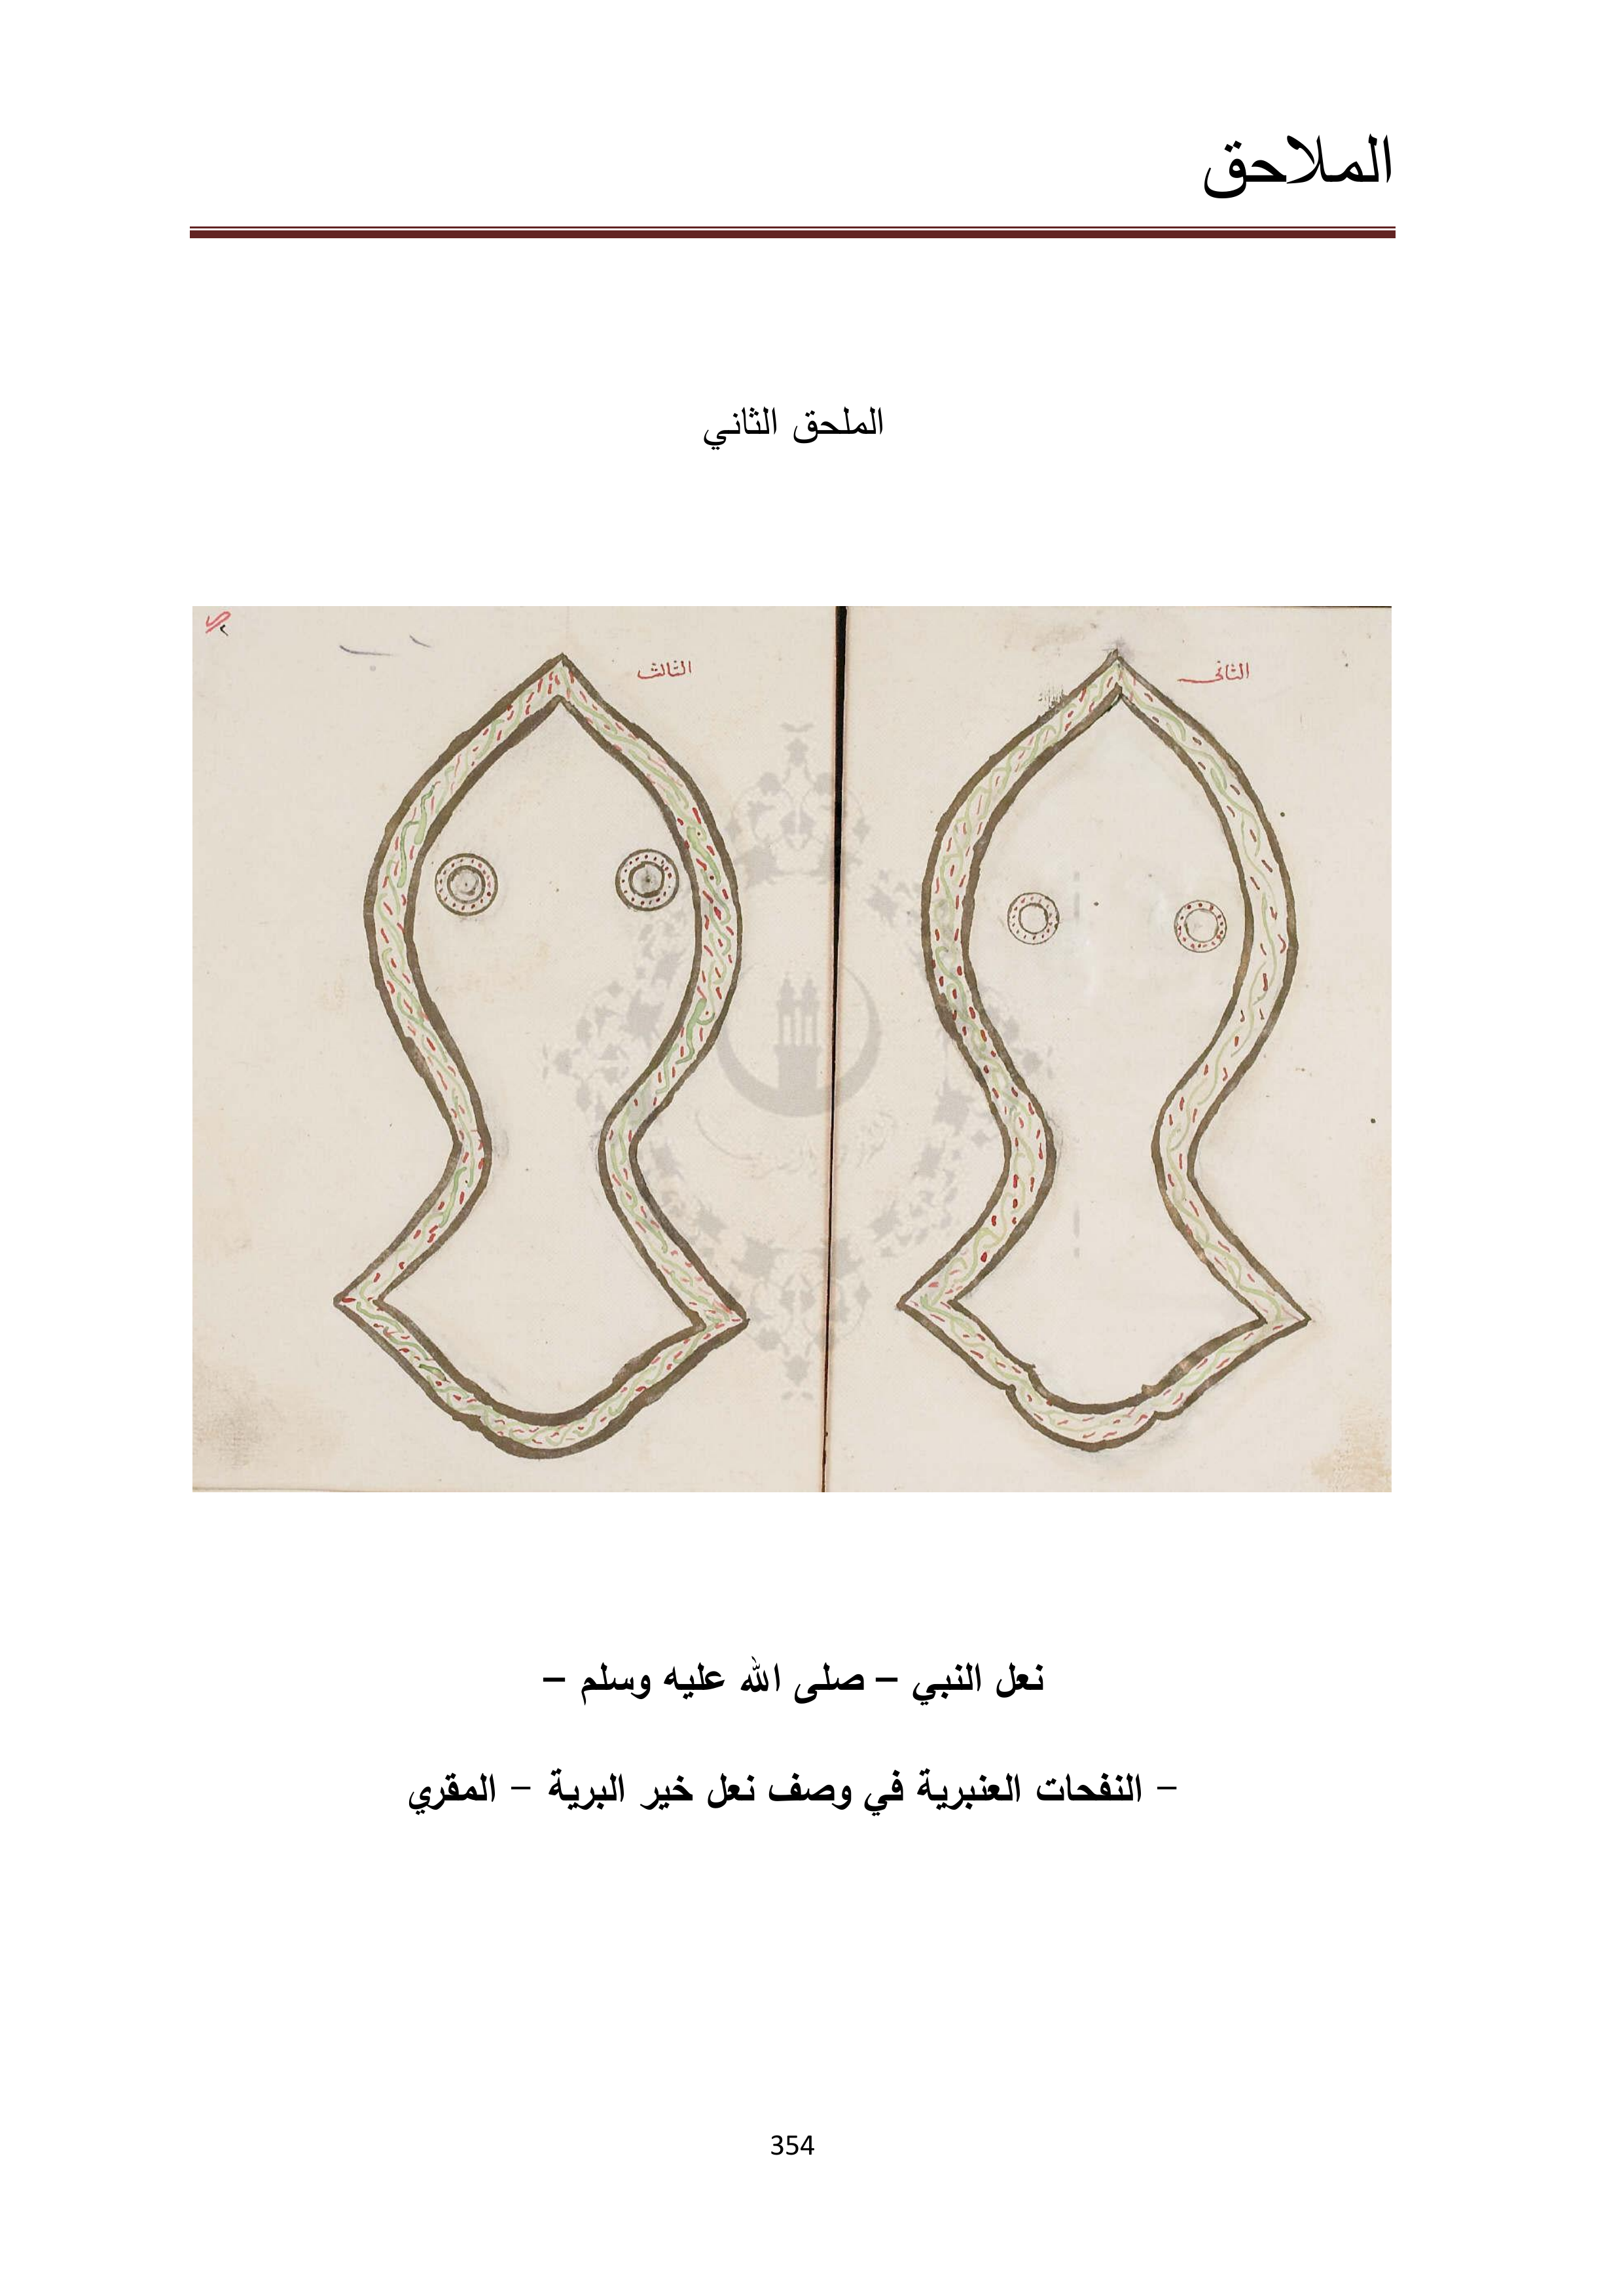 الملاحق
الملحق الثاني
الثانى
الثالث
نعل النبي – صلى الله عليه وسلم –
– النفحات العنبرية في وصف نعل خير البرية – المقري
354